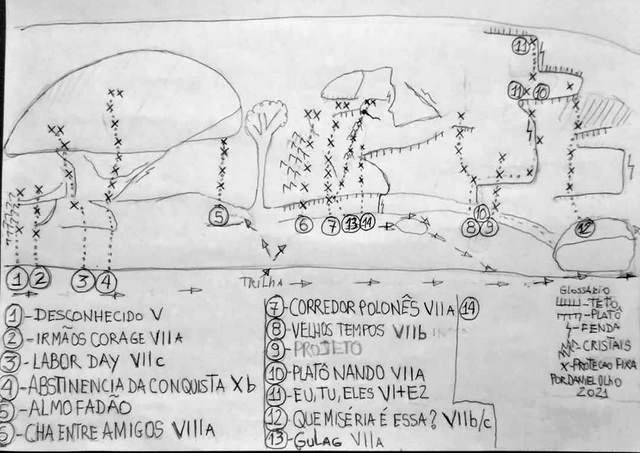 11
11
10
5
6
7
13
14
8
10
9
12
1
2
3
4
TRILHA
1-DESCONHECIDO V
2-IRMÃOS CORAGE VIIA
3-LABOR DAY VIIc
4-ABSTINENCIA DA CONQUISTA Xb
5-ALMOFADÃO
6-CHA ENTRE AMIGOS VIIIA
7-CORREDOR POLONÊS VIIA
8-VELHOS TEMPOS VIIb
9-PROJETO
10-PLATÔ NANDO VIIA
11-EU,TU,ELES VI+E2
12-QUE MISÉRIA É ESSA? VIIb/c
13-GULAG VIIA
14
GLOSSÁRIO
-TETO
-PLATÔ
-FENDA
-CRISTAIS
X-PROTEÇÃO FIXA
POR DANIEL OLHO
2021